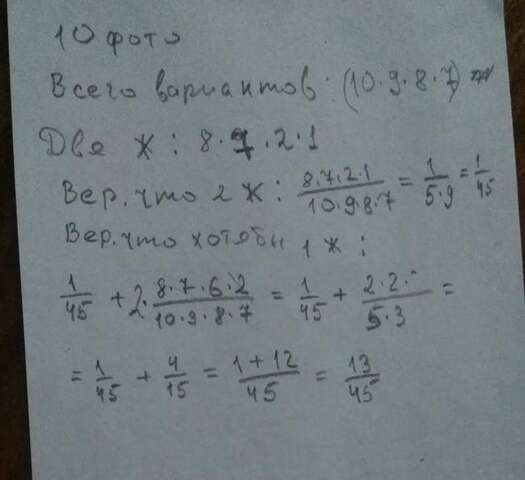 10 фото
Всего вариантов: (10·9·8·7)
Две Ж: 8·7·2·1
Вер. что 2 Ж: 8·7·2·1/10·9·8·7 = 1/5·9 = 1/45
Вер. что хотябы 1 Ж:
1/45 + 2·8·7·6·2/10·9·8·7 = 1/45 + 2·2·/5·3 =
= 1/45 + 4/15 = 1+12/45 = 13/45